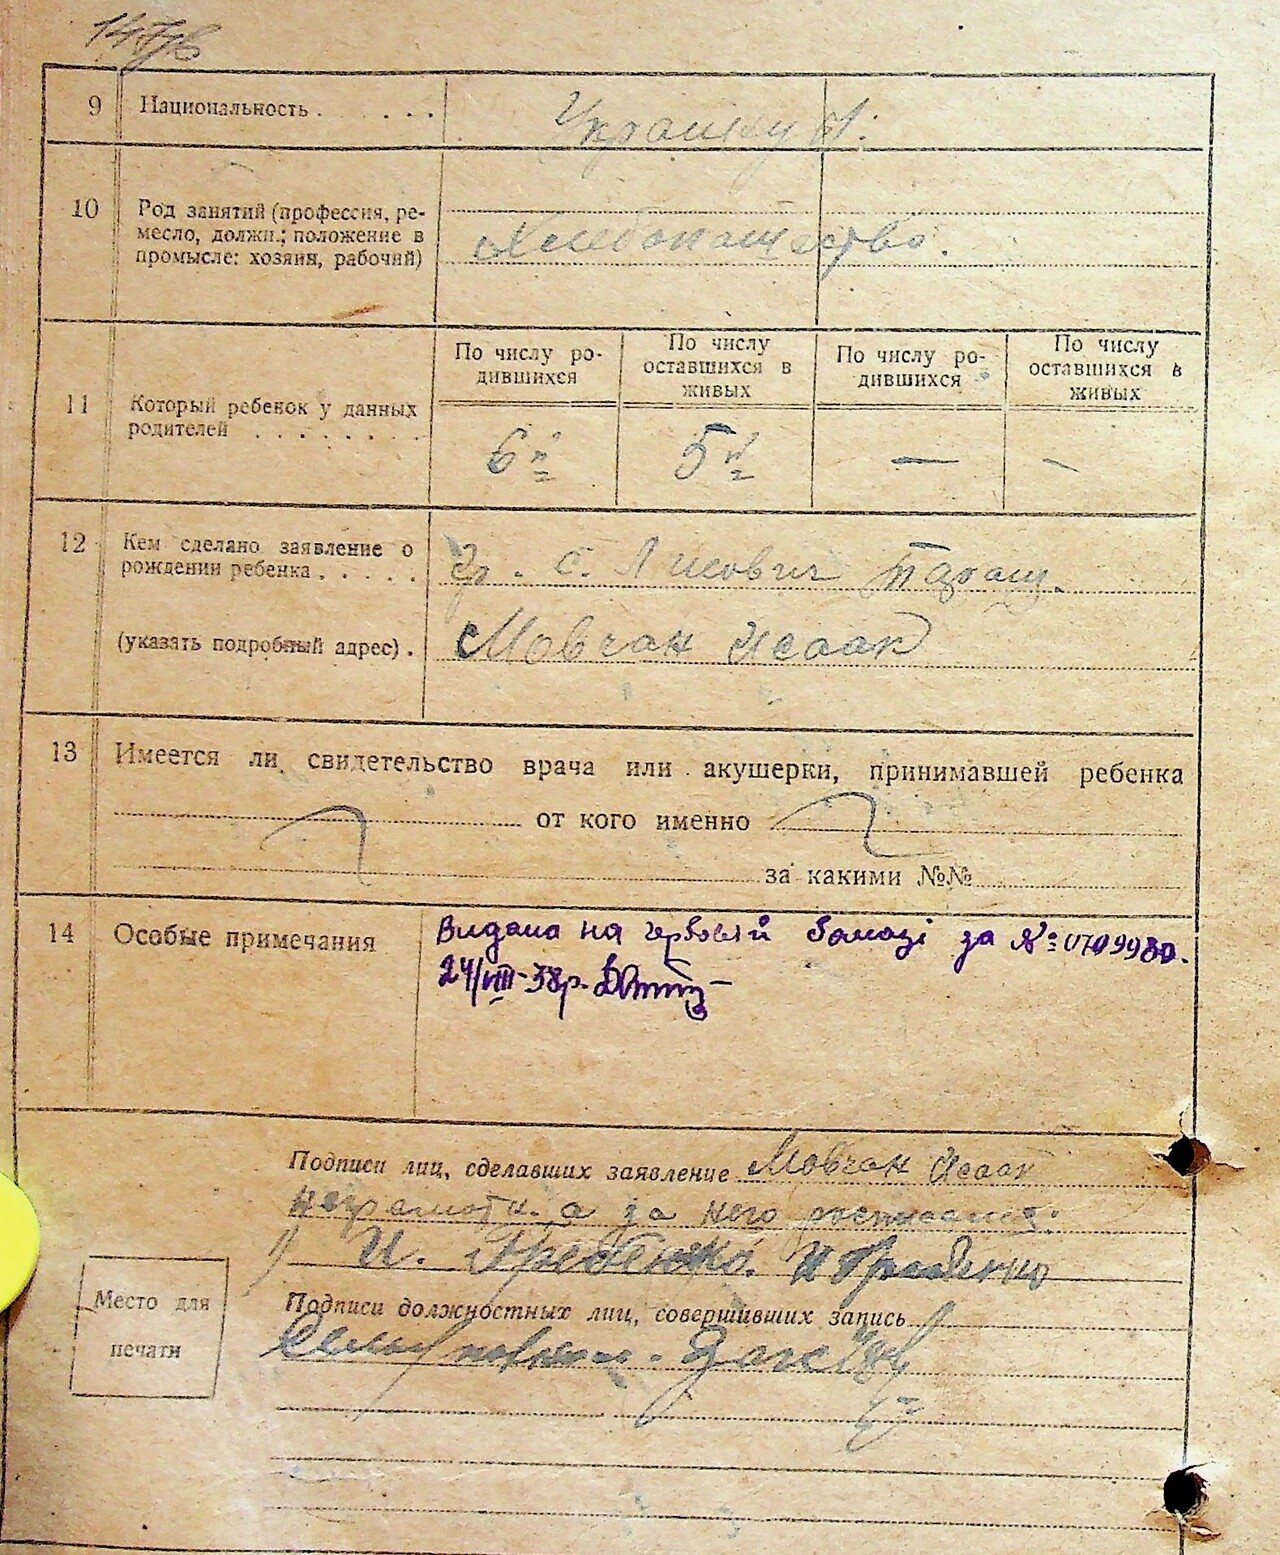 9 Национальность . . . . .
10 Род занятий (профессия, ре-
месло, должн.; положение в
промысле: хозяин, рабочий)
Хлебопащество.
11 Который ребенок у данных
родителей . . . . . . . .
По числу ро-
дившихся
По числу
оставшихся в
живых
По числу ро-
дившихся
По числу
оставшихся в
живых
6й 5й — —
12 Кем сделано заявление о
рождении ребенка . . . . .
гр. с. Тараш.
(указать подробный адрес) .
Мовчан Исаак
13 Имеется ли свидетельство врача или акушерки, принимавшей ребенка
от кого именно
за какими №№
14 Особые примечания
Видана на гербовій бомазі за № 0709980.
24/VIII-38р.
Подписи лиц, сделавших заявление Мовчан Исаак
неграмотн. а за него
1) И. Гребенко. И Гребенко
Место для
печати
Подписи должностных лиц, совершивших запись